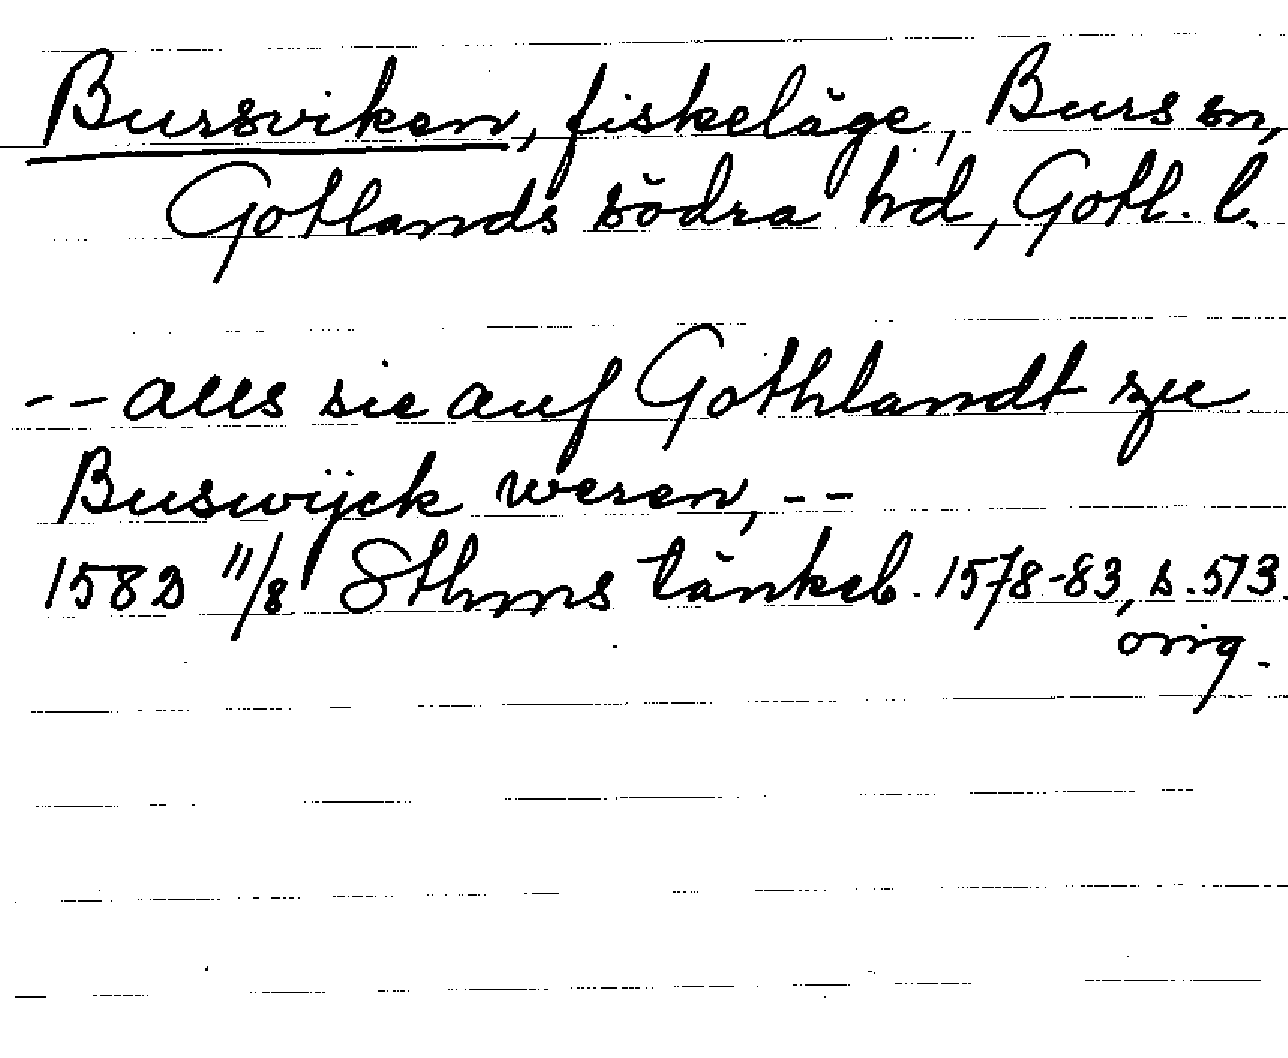 Bursviken, fiskeläge, Burs sn,
Gotlands södra hd, Gotl. l.
-- alls sie auf Gothlandt zu
Buswijck weren, --
1582 11/8 Sthms tänkeb. 1578-83, s. 573.
orig.